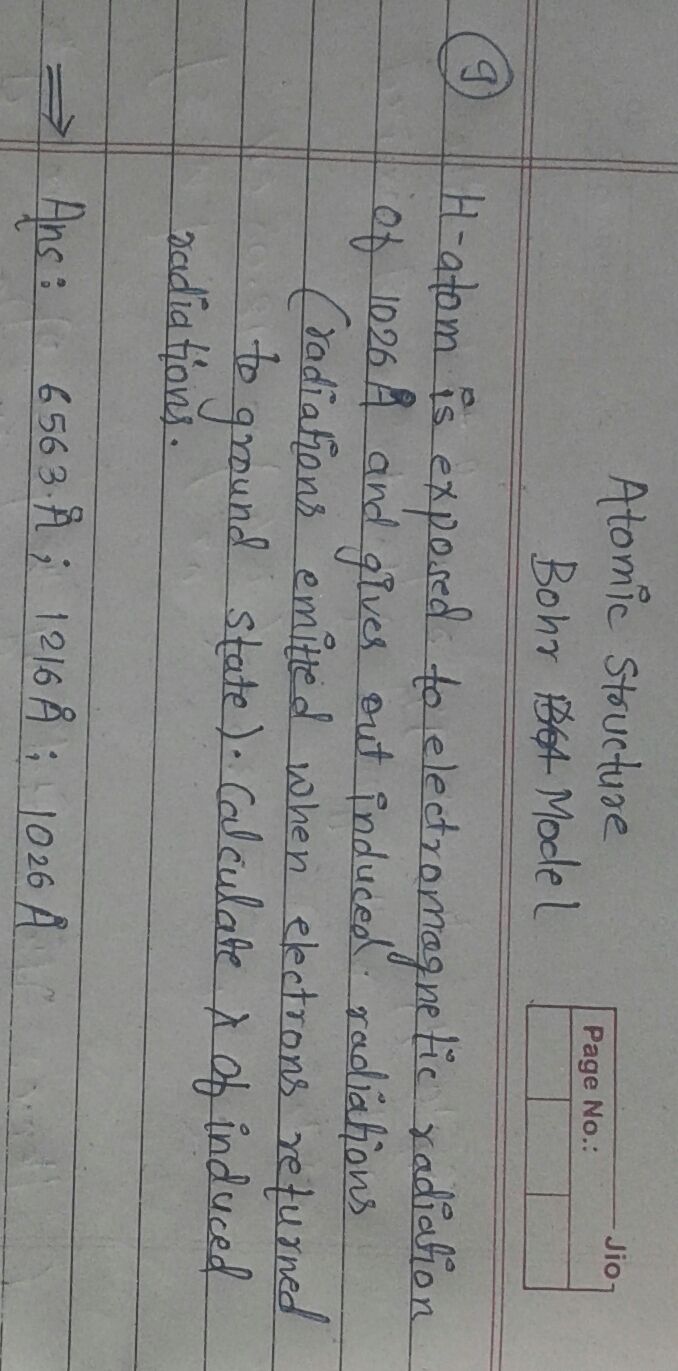 Jio
Page No.:
Atomic Structure
Bohr Model
9 H-atom is exposed to electromagnetic radiation
of 1026 Å and gives out induced radiations
(radiations emitted when electrons returned
to ground state). Calculate λ of induced
radiations.
⇒ Ans: 6563 Å; 1216 Å; 1026 Å